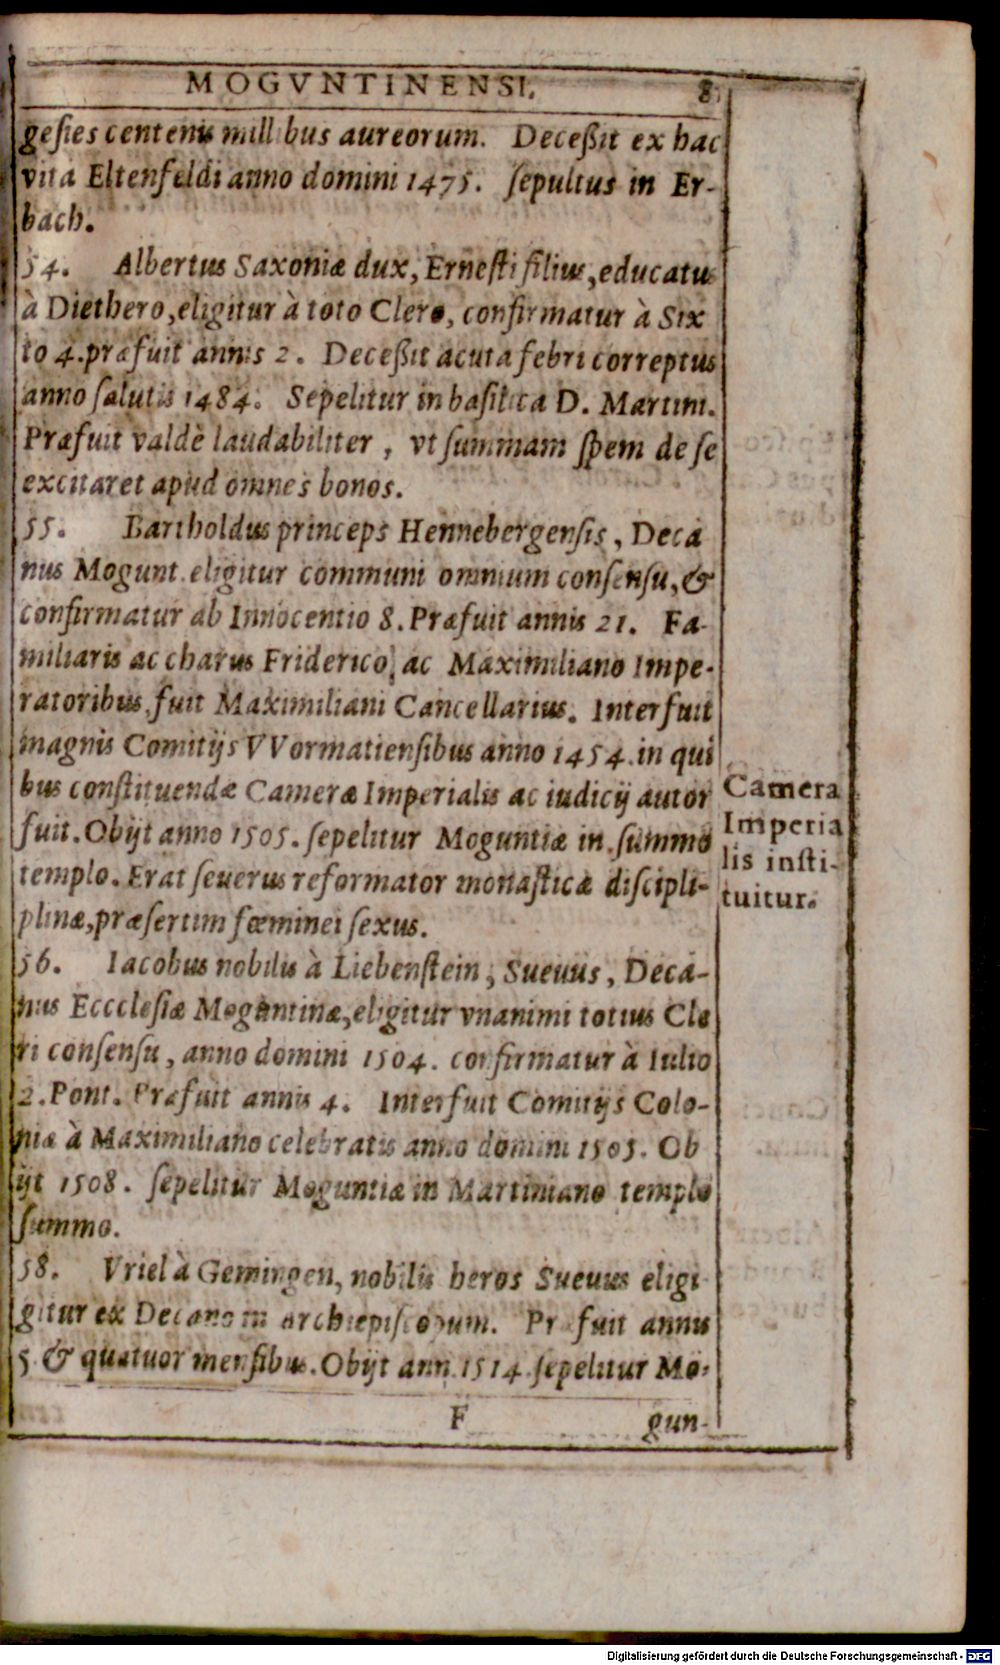 MOGVNTINENSI.
gesies centenis millibus aureorum. Deceßit ex hac
vita Eltenfeldi anno domini 1475. sepultus in Er-
bach.
54. Albertus Saxoniæ dux, Ernesti filius, educatus
à Diethero, eligitur à toto Clero, confirmatur à Six
to 4. præfuit annis 2. Deceßit acuta febri correptus
anno salutis 1484. Sepelitur in basilica D. Martini.
Præfuit valdè laudabiliter, vt summam spem de se
excitaret apud omnes bonos.
55. Bartholdus princeps Hennebergensis, Deca
nus Mogunt. eligitur communi omnium consensu, &
confirmatur ab Innocentio 8. Præfuit annis 21. Fa-
miliaris ac charus Friderico, ac Maximiliano Impe-
ratoribus fuit Maximiliani Cancellarius. Interfuit
magnis Comitijs VVormatiensibus anno 1454. in qui
bus constituendæ Cameræ Imperialis ac iudicij autor
fuit. Obijt anno 1505. sepelitur Moguntiæ in summo
templo. Erat seuerus reformator monasticæ discipli-
plinæ, præsertim fœminei sexus.
Camera
Imperia
lis insti-
tuitur.
56. Iacobus nobilis à Liebenstein, Sueuus, Deca-
nus Eccclesiæ Moguntinæ, eligitur vnanimi totius Cle
ri consensu, anno domini 1504. confirmatur à Iulio
2. Pont. Præfuit annis 4. Interfuit Comitijs Colo-
niæ à Maximiliano celebratis anno domini 1505. Ob
ijt 1508. sepelitur Moguntiæ in Martiniano templo
summo.
58. Vriel à Gemingen, nobilis heros Sueuus eligi
gitur ex Decano in Archiepiscopum. Præfuit annis
5 & quatuor mensibus. Obijt ann. 1514. sepelitur Mo-
F gun-
Digitalisierung gefördert durch die Deutsche Forschungsgemeinschaft - DFG